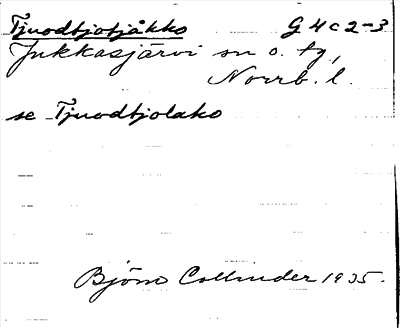 Tjuodtjotjåkko G4c2-3
Jukkasjärvi sn o. tg,
Norrb. l.
se Tjuodtjolako
Björn Collinder 1935.